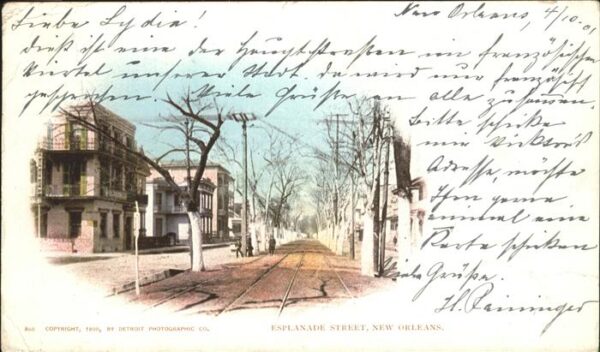 Liebe Lydia! New Orleans, 4/10.01
Dieß ist eine der Hauptstraßen im französischen
Viertel unserer Stadt. da wird nur französisch
gesprochen. Viele Grüße an alle zusammen.
Bitte schicke
mir Viktors
Adresse, möchte
Ihm gerne
einmal eine
Karte schicken
Viele Grüße.
H. Paininger
860 COPYRIGHT, 1900, BY DETROIT PHOTOGRAPHIC CO.
ESPLANADE STREET, NEW ORLEANS.